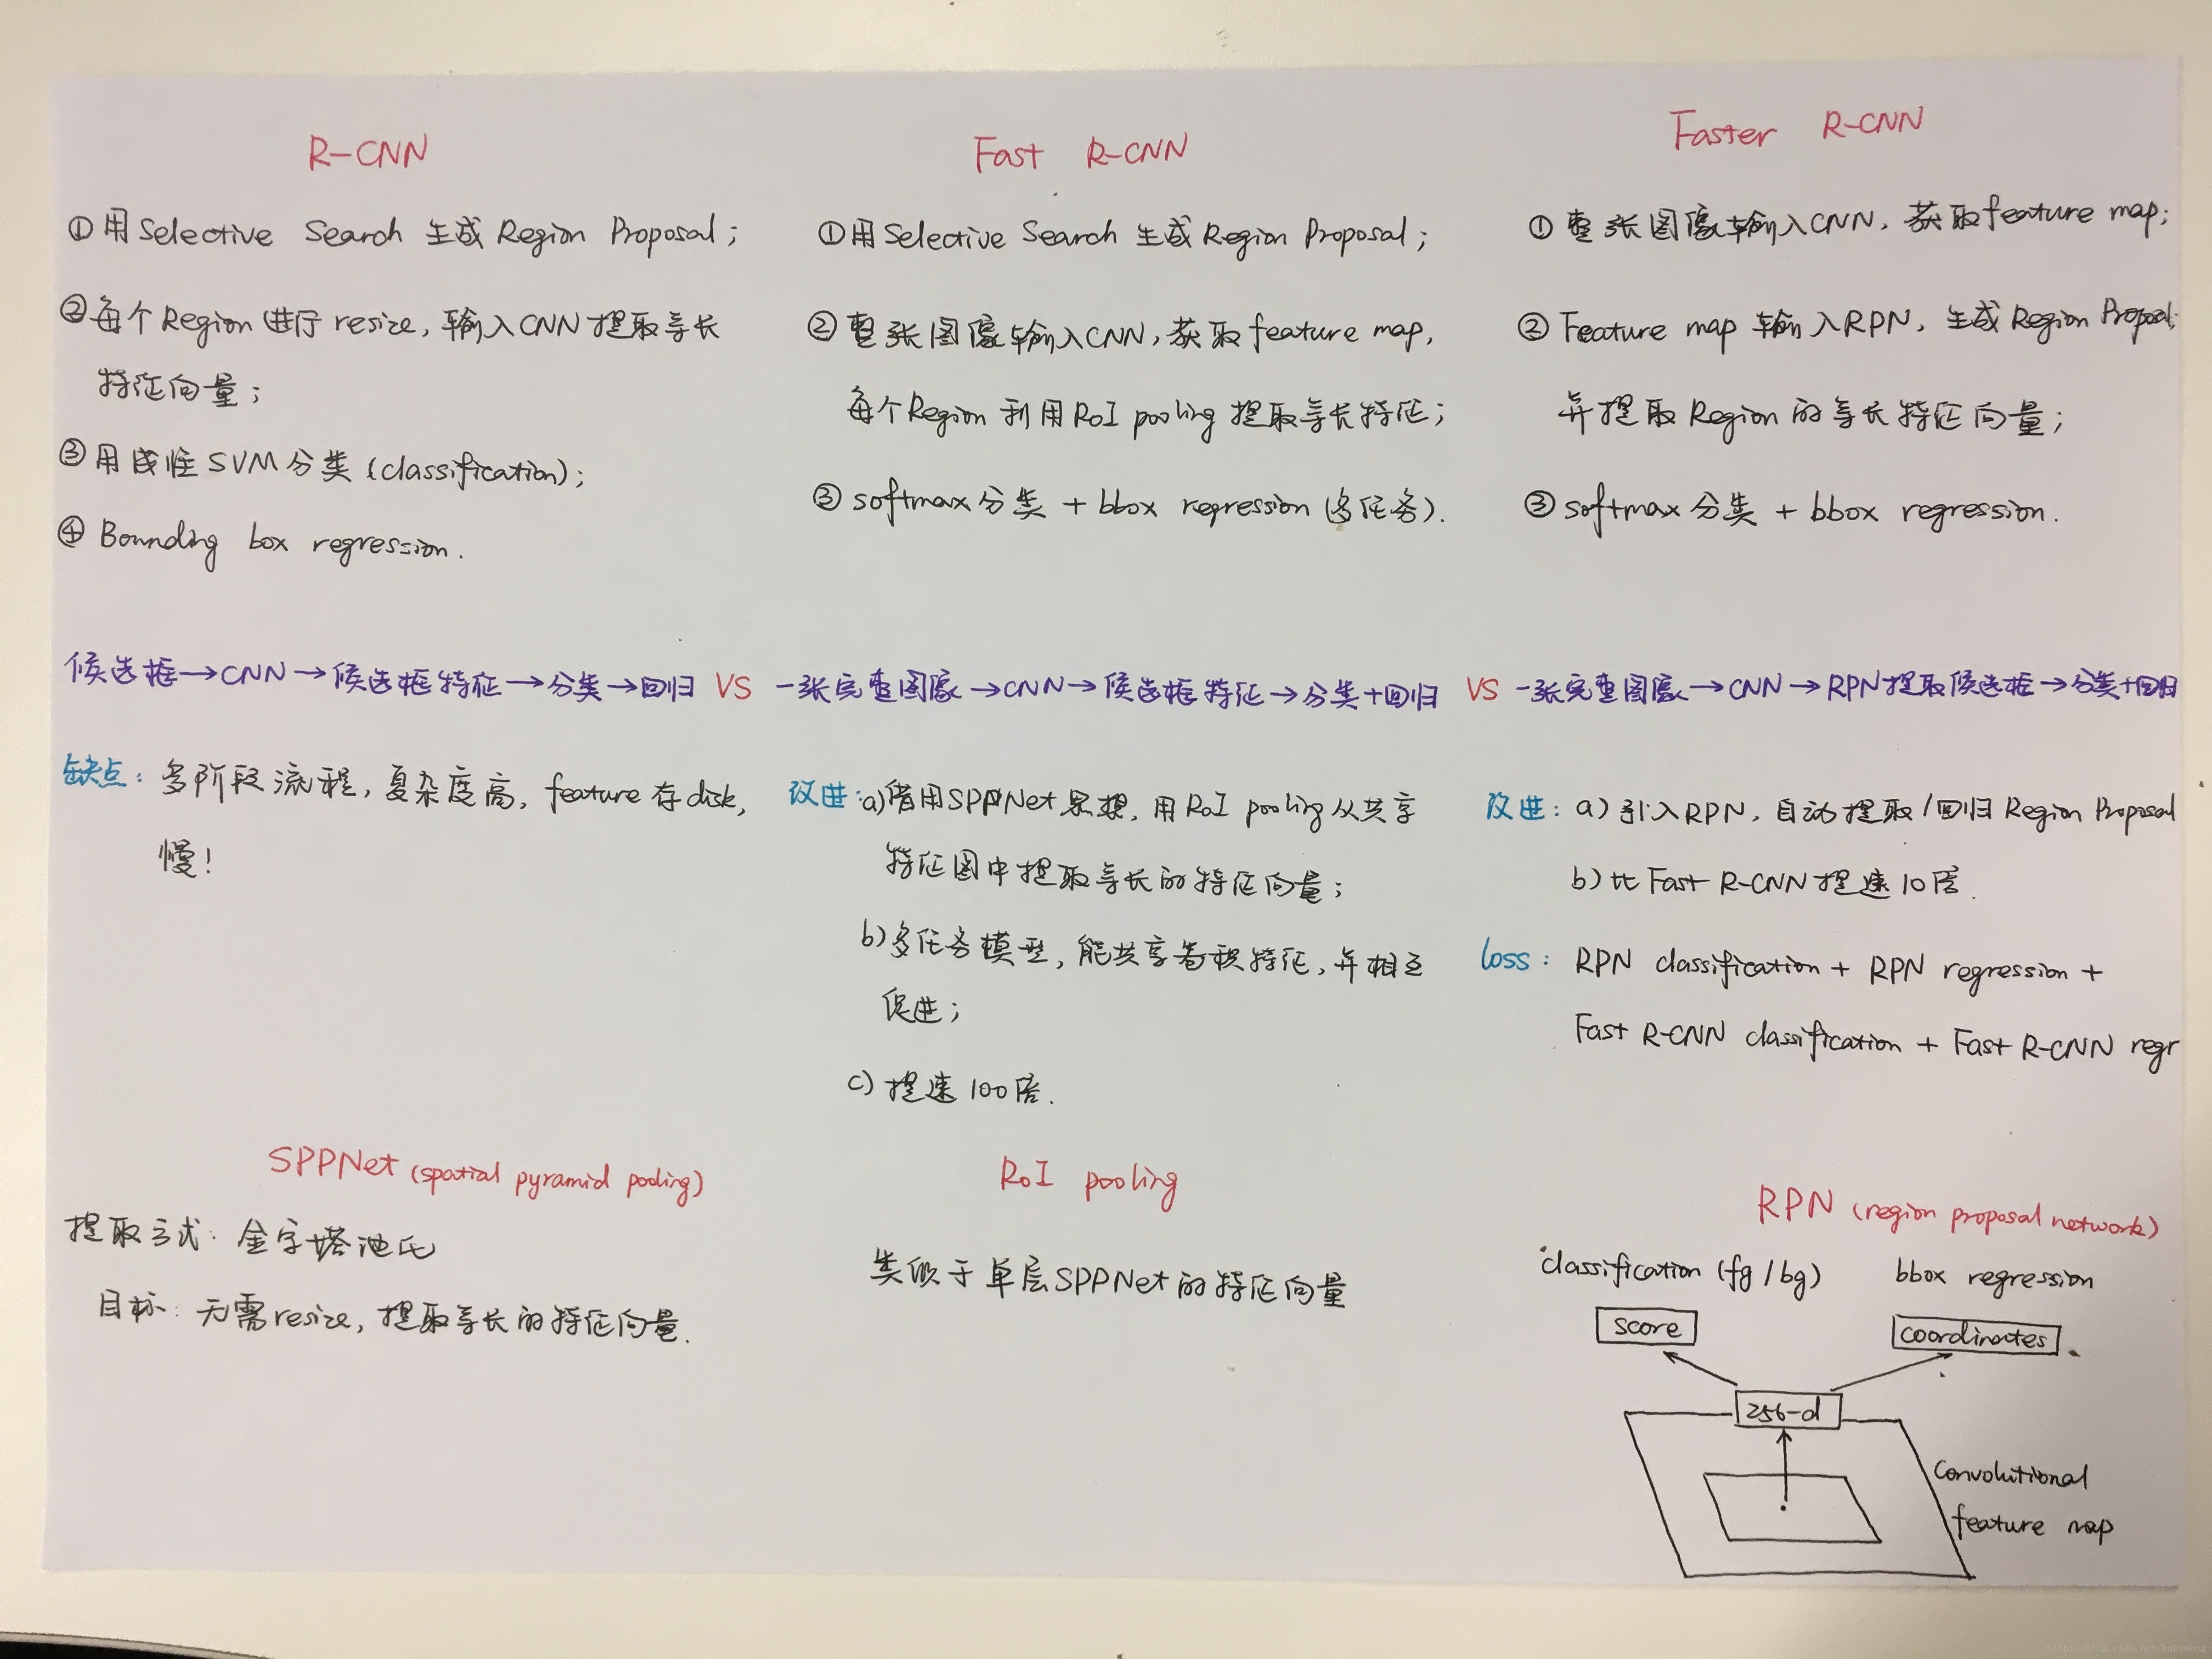 R-CNN
①用Selective Search 生成Region Proposal;
②每个Region进行resize, 输入CNN提取等长
特征向量;
③用线性SVM分类 (classification);
④ Bounding box regression.
Fast R-CNN
①用Selective Search 生成Region Proposal;
②整张图像输入CNN, 获取feature map,
每个Region利用RoI pooling提取等长特征;
③softmax分类 + bbox regression (多任务).
Faster R-CNN
①整张图像输入CNN, 获取feature map;
②Feature map 输入RPN, 生成Region Proposal,
并提取Region的等长特征向量;
③softmax分类 + bbox regression.
候选框→CNN→候选框特征→分类→回归 VS 一张完整图像→CNN→候选框特征→分类+回归 VS 一张完整图像→CNN→RPN提取候选框→分类+回归
缺点: 多阶段流程, 复杂度高, feature存disk,
慢!
改进: a)借用SPPNet思想, 用RoI pooling从共享
特征图中提取等长的特征向量;
b)多任务模型, 能共享卷积特征, 并相互
促进;
c)提速100倍.
改进: a)引入RPN, 自动提取/回归Region Proposal
b)比Fast R-CNN提速10倍.
loss: RPN classification + RPN regression +
Fast R-CNN classification + Fast R-CNN regr
SPPNet (spatial pyramid pooling)
提取方式: 金字塔池化
目标: 无需resize, 提取等长的特征向量.
RoI pooling
类似于单层SPPNet的特征向量
RPN (region proposal network)
classification (fg/bg) bbox regression
score coordinates
256-d
Convolutional
feature map